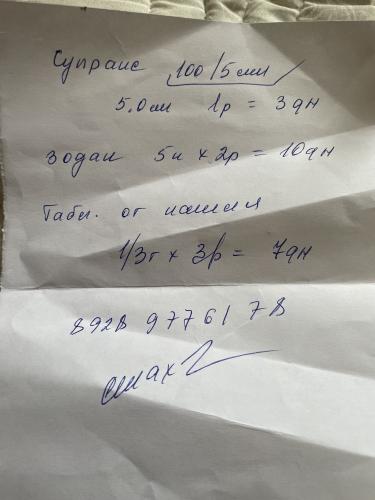 Супракс 100/5 мл
5.0 мл 1р = 3 дн
Зодак 5к х 2р = 10 дн
Табл. от кашля
1/3т х 3р = 7 дн
8928 9776178